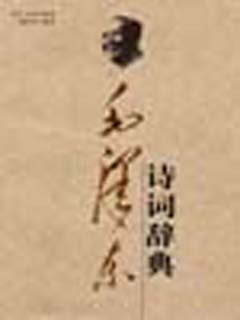 毛泽东
诗词辞典